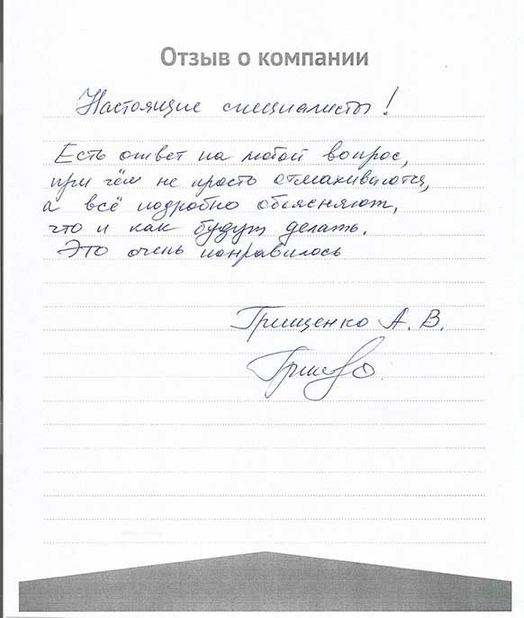 Отзыв о компании
Настоящие специалисты!
Есть ответ на любой вопрос,
при чём не просто отмахиваются,
а всё подробно объясняют,
что и как будут делать.
Это очень понравилось
Грищенко А. В.